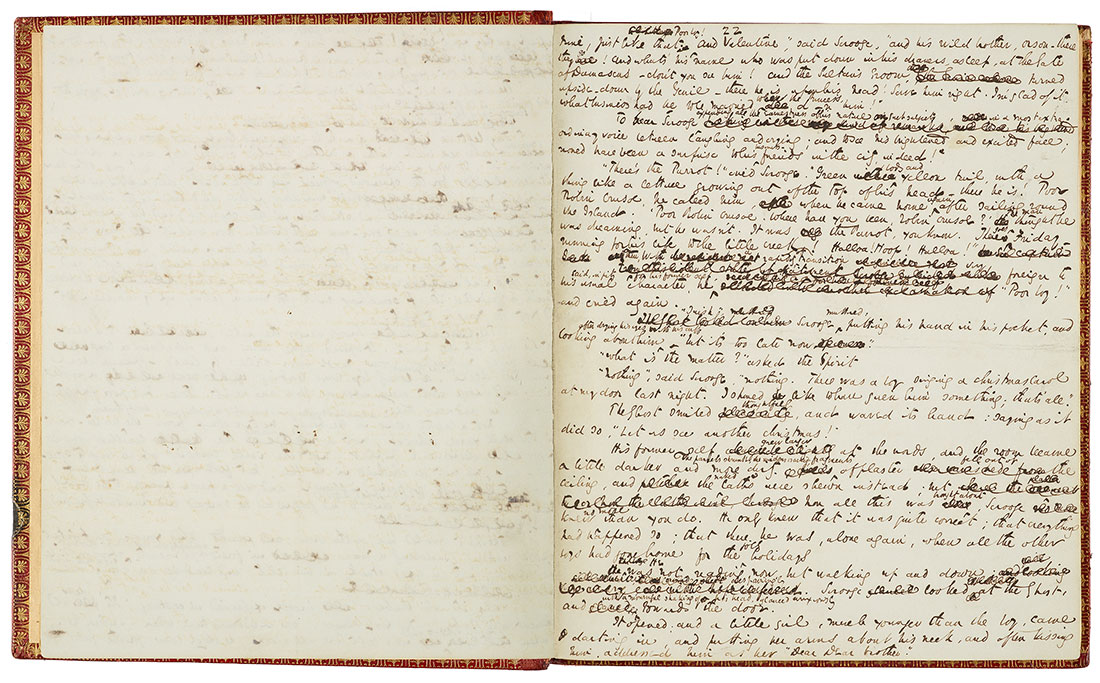 Poor boy! 22
time, just like that. And Valentine," said Scrooge, "and his wild brother, Orson–there
they are! And what's his name who was put down in his drawers, asleep, at the Gate
of Damascus–don't you see him! And the Sultan's Groom turned
upside-down by the Genii–there he is upon his head! Serve him right. I'm glad of it.
what business had he to be married to the Princess!"
To hear Scrooge expending all the earnestness of his nature on such subjects, in a most extra-
ordinary voice between laughing and crying; and to see his heightened and excited face;
would have been a surprise to his friends in the city, indeed!"
"There's the Parrot!" cried Scrooge. "Green body and yellow tail, with a
thing like a lettuce growing out of the top of his head–there he is! Poor
Robin Crusoe, he called him, when he came home again after sailing round
the Island. 'Poor Robin Crusoe, where have you been, Robin Crusoe?' The man thought he
was dreaming, but he wasn't. It was the Parrot, you know. There goes Friday
running for his life to the little creek! Halloa! Hoop! Halloo!"
Then, with a rapidity of transition very
foreign to
his usual character, he said, in pity for his former self, "Poor boy!"
and cried again.
"I wish," Scrooge muttered, putting his hand in his pocket, and
looking about him after drying his eyes with his cuff, "but it's too late now."
"What is the matter?" asked the Spirit
"Nothing", said Scrooge, "nothing. There was a boy singing a christmas Carol
at my door last night. I should like to have given him something; that's all."
The Ghost smiled thoughtfully, and waved its hand: saying as it
did so, "Let us see another christmas!"
His former self grew larger at the words, and the room became
a little darker and more dirty. The panels shrunk, the windows cracked; fragments of plaster fell out of the
ceiling, and the laths were shewn instead; but
how all this was brought about, Scrooge
knew no more than you do. He only knew that it was quite correct; that everything
had happened so; that there he was, alone again, when all the other
boys had gone home for the jolly holidays
He was not reading now, but walking up and down
despairingly. Scrooge looked at the Ghost,
and with a mournful shaking of his head, glanced anxiously towards the door.
It opened; and a little girl, much younger than the boy, came
darting in, and putting her arms about his neck, and often kissing
him, addressed him as her "Dear Dear brother."